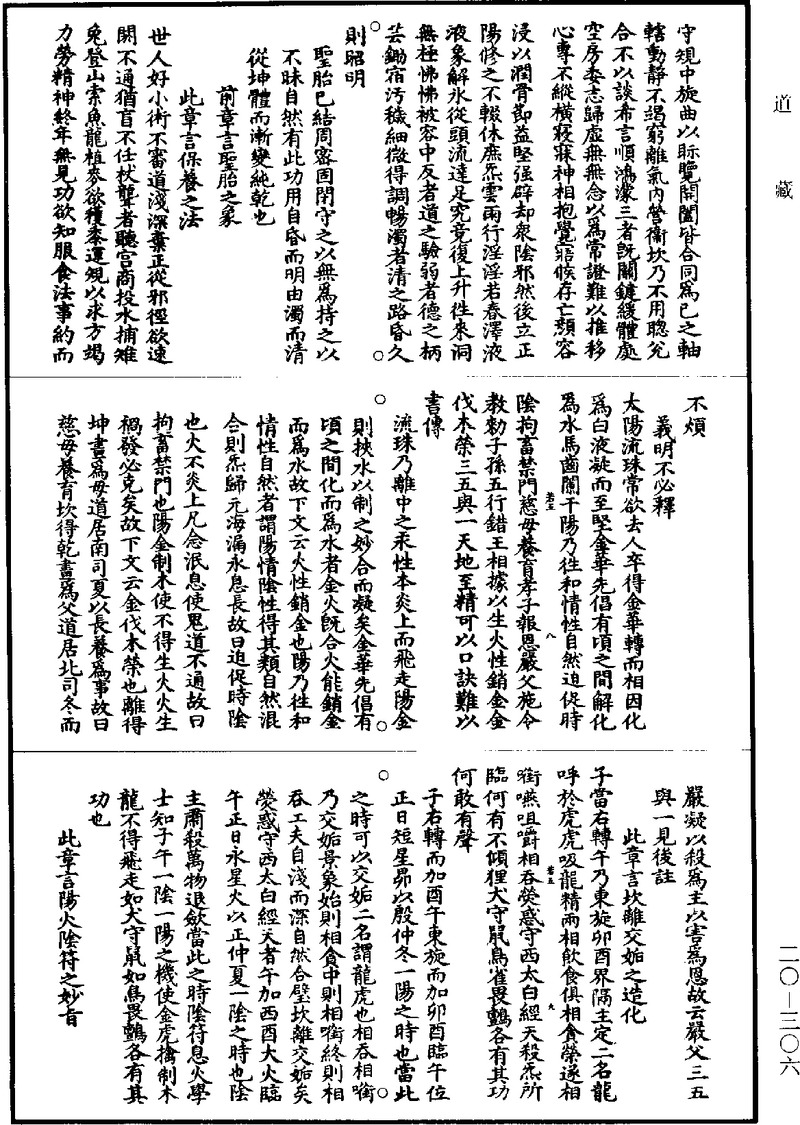 道藏
守規中旋曲以眎覽開闔皆合同為己之軸
轄動靜不竭窮離氣內營衛坎乃不用聰兊
合不以談希言順鴻濛三者既關鍵緩體處
空房委志歸虛無無念以為常證難以推移
心專不縱橫寢寐神相抱覺寤候存亡顏容
浸以潤骨節益堅强辟却衆陰邪然後立正
陽修之不輟休庶炁雲雨行淫淫若春澤液
液象解氷從頭流達足究竟復上升徃來洞
無極怫怫被容中反者道之驗弱者德之柄
芸鋤宿汚穢細微得調暢濁者清之路昏久
則昭明
聖胎已結周密固閉守之以無為持之以
不昧自然有此功用自昏而明由濁而清
從坤體而漸變純乾也
前章言聖胎之象
此章言保養之法
世人好小術不審道淺深棄正從邪徑欲速
閼不通猶盲不任杖聾者聽宮商投水捕雉
兔登山索魚龍植麥欲穫黍運規以求方竭
力勞精神終年無見功欲知服食法事約而
不煩
義明不必釋
太陽流珠常欲去人卒得金華轉而相因化
為白液凝而至堅金華先倡有頃之間解化
為水馬齒闌干陽乃徃和情性自然迫促時
陰拘畜禁門慈母養育孝子報恩嚴父施令
教勑子孫五行錯王相據以生火性銷金金
伐木榮三五與一天地至精可以口訣難以
書傳
若五
八
流珠乃離中之汞性本炎上而飛走陽金
則挾水以制之妙合而凝矣金華先倡有
頃之間化而為水者金火既合火能銷金
而為水故下文云火性銷金也陽乃徃和
情性自然者謂陽情陰性得其類自然混
合則炁歸元海漏永息長故曰迫促時陰
也火不炎上凡念泯息使鬼道不通故曰
拘畜禁門也陽金制木使不得生火火生
禍發必克矣故下文云金伐木榮也離得
坤畫為母道居南司夏以長養為事故曰
慈母養育坎得乾畫為父道居北司冬而
嚴凝以殺為主以害為恩故云嚴父三五
與一見後註
此章言坎離交姤之造化
子當右轉午乃東旋卯酉界隔主定二名龍
呼於虎虎吸龍精兩相飲食俱相貪榮遂相
銜嚥咀嚼相吞熒惑守西太白經天殺炁所
臨何有不傾狸犬守鼠鳥雀畏鸇各有其功
何敢有聲
若五
九
子右轉而加酉午東旋而加卯酉臨午位
正日短星昴以殷仲冬一陽之時也當此
之時可以交姤二名謂龍虎也相吞相啣
乃交姤景象始則相貪中則相啣終則相
吞工夫自淺而深自然合璧坎離交姤矣
熒惑守西太白經天者午加西酉大火臨
午正日永星火以正仲夏一陰之時也陰
主肅殺萬物退歛當此之時陰符息火學
士知子午一陰一陽之機使金虎擒制木
龍不得飛走如犬守鼠如鳥畏鸇各有其
功也
此章言陽火陰符之妙旨
二〇-三〇六